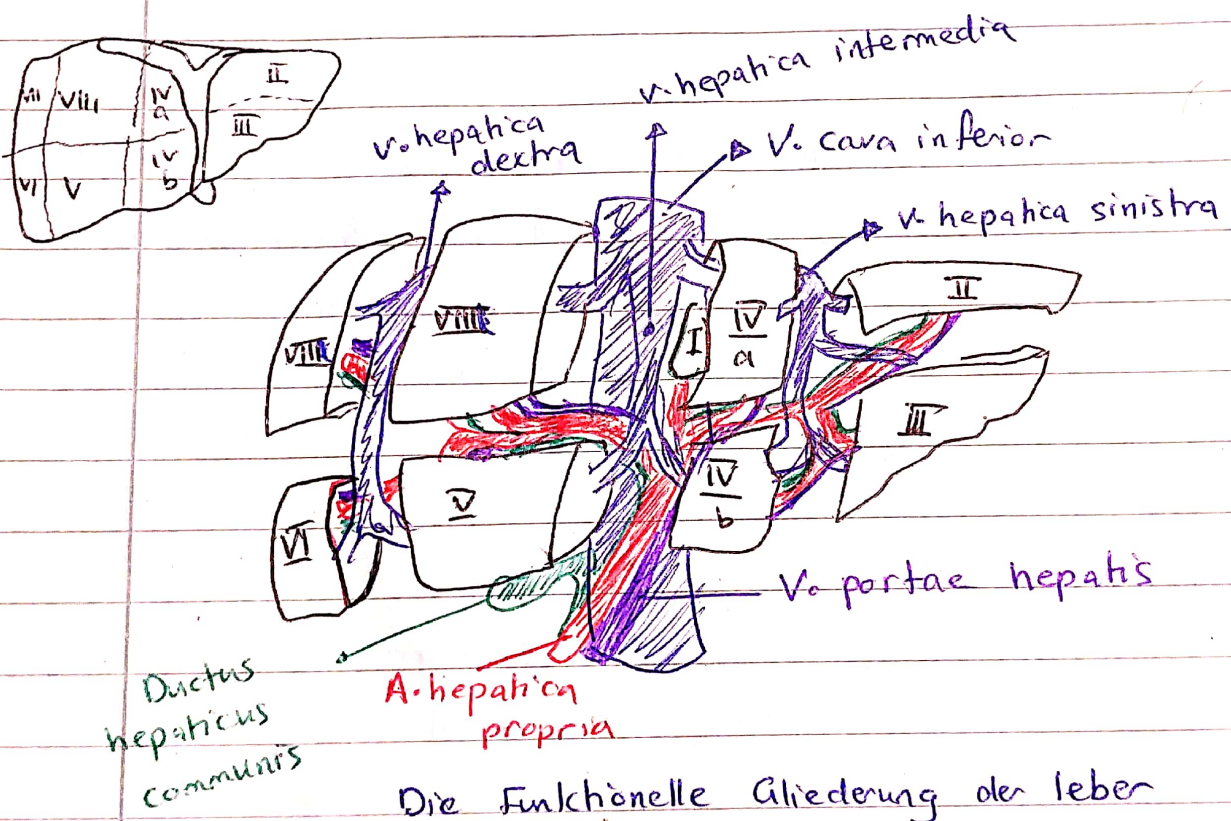 II
III
VII
VIII
IV
a
VI
V
IV
b
v. hepatica intermedia
v. hepatica
dextra
V. cava inferior
v. hepatica sinistra
VIII
VIII
I
IV
a
II
III
VI
V
IV
b
V. portae hepatis
Ductus
hepaticus
communis
A. hepatica
propria
Die Funktionelle Gliederung der leber